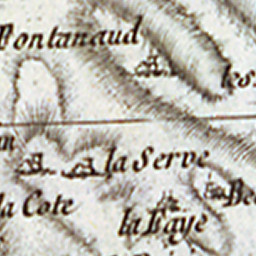 Fontanaud
les
la Serve
la Cote
la Faye